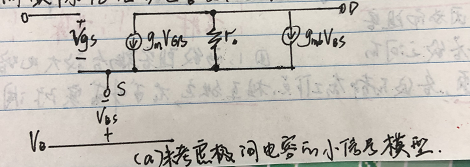 D
+
Vgs
−
gmVGS
ro
gmbVBS
S
−
VBS
+
VB
(a)未考虑极间电容的小信号模型.